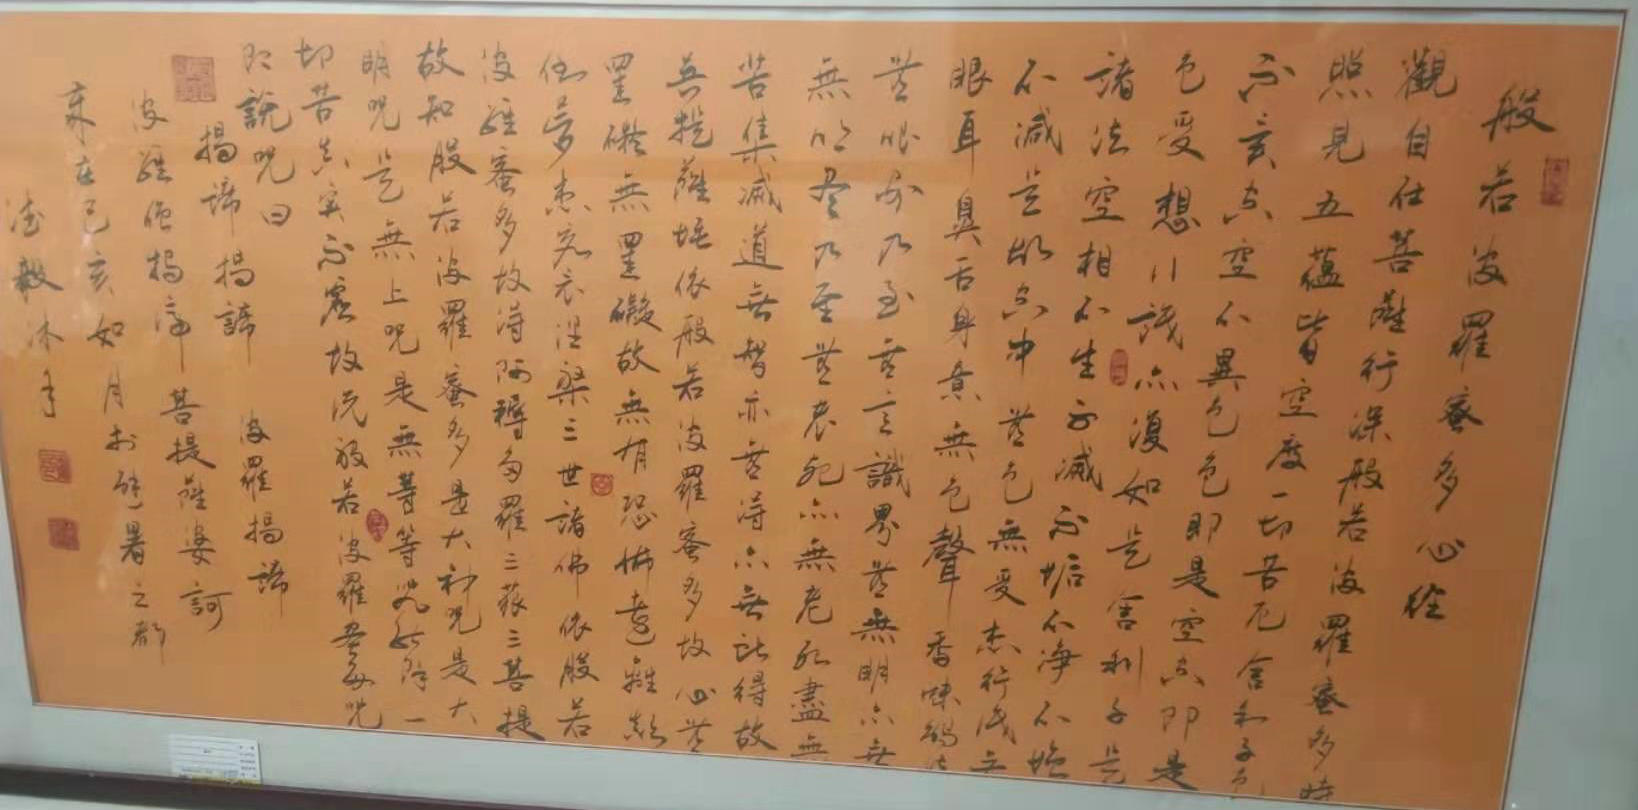 般若波羅蜜多心經
觀自在菩薩行深般若波羅蜜多時
照見五蘊皆空度一切苦厄舍利子色
不異空空不異色色即是空空即是
色受想行識亦復如是舍利子是
諸法空相不生不滅不垢不淨不增
不減是故空中無色無受想行識無
眼耳鼻舌身意無色聲香味觸法
無眼界乃至無意識界無無明亦無
無明盡乃至無老死亦無老死盡無
苦集滅道無智亦無得亦無所得故
無提薩埵依般若波羅蜜多故心無
罣礙無罣礙故無有恐怖遠離顛
倒夢想究竟涅槃三世諸佛依般若
波羅蜜多故得阿耨多羅三藐三菩提
故知般若波羅蜜多是大神咒是大
明咒是無上咒是無等等咒能除一
切苦真實不虛故說般若波羅蜜多咒
即說咒曰
揭諦揭諦 波羅揭諦
波羅僧揭諦菩提薩婆訶
歲在己亥如月於避暑之都
毅沐手